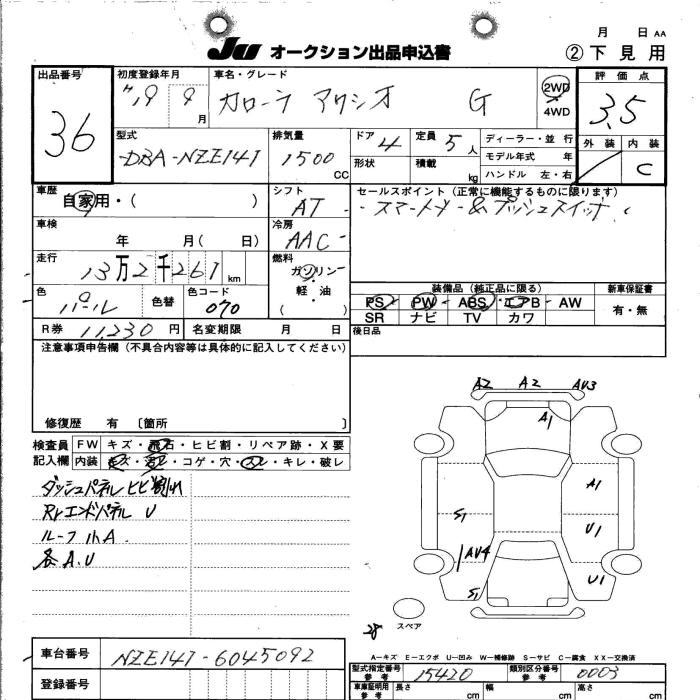 月 日 AA
JU オークション出品申込書 ② 下見用
出品番号 36
初度登録年月 '19 9月
車名・グレード カローラ アクシオ G
2WD
4WD
評価点 3.5
外装 内装 C
型式 DBA-NZE141
排気量 1500 CC
ドア 4
定員 5人
形状
積載 kg
ディーラー・並行
モデル年式 年
ハンドル 左・右
車歴 自家用・( )
シフト AT
セールスポイント (正常に機能するものに限ります)
スマートキー&プッシュスイッチ
車検 年 月( 日)
冷房 AAC
走行 13万2千267 km
燃料 ガソリン・軽・油 ( )
装備品 (純正品に限る)
PS PW ABS エアB AW
SR ナビ TV カワ
新車保証書 有・無
色 パール 色替
色コード 070
R券 11,230 円
名変期限 月 日
後日品
注意事項申告欄 (不具合内容等は具体的に記入してください)
修復歴 有 〔箇所 〕
検査員記入欄
FW キズ・飛石・ヒビ割・リペア跡・X要
内装 キズ・汚レ・コゲ・穴・スレ・キレ・破レ
ダッシュパネルヒビ割れ
Rrエンドパネル U
ルーフ小A
各A.U
A2 A2 AU3
A1
A1
S1
U1
AU4
U1
S1
28
スペア
A-キズ E-エクボ U-凹み W-補修跡 S-サビ C-腐食 XX-交換済
車台番号 NZE141-6045092
登録番号
型式指定番号 参考 15420
類別区分番号 参考 0003
車車証明用 参考 長さ cm 幅 cm 高さ cm